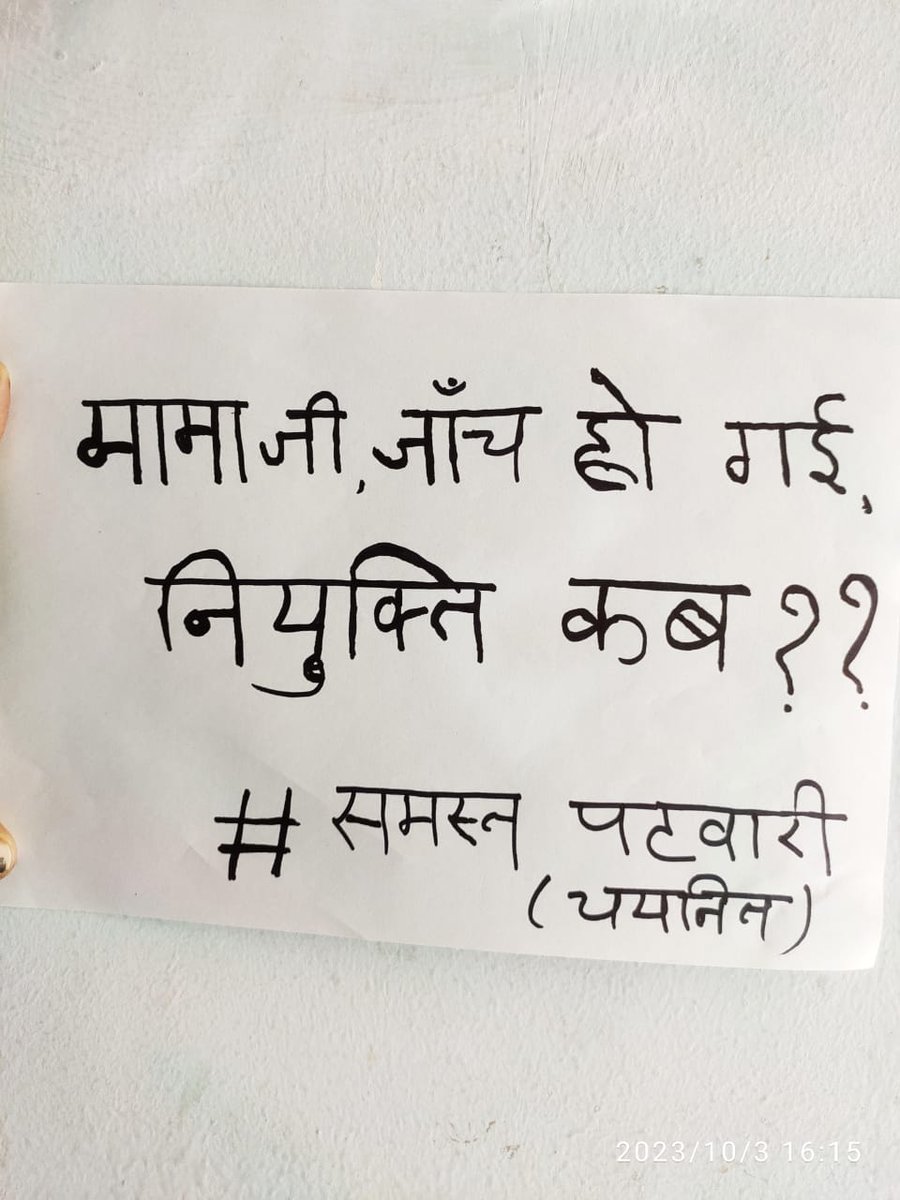 मामाजी, जाँच हो गई,
नियुक्ति कब ??
# समस्त पटवारी
(चयनित)
2023/10/3 16:15